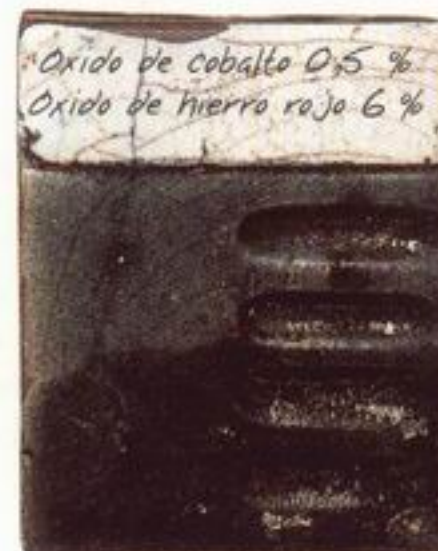 Oxido de cobalto 0,5 %
Oxido de hierro rojo 6 %